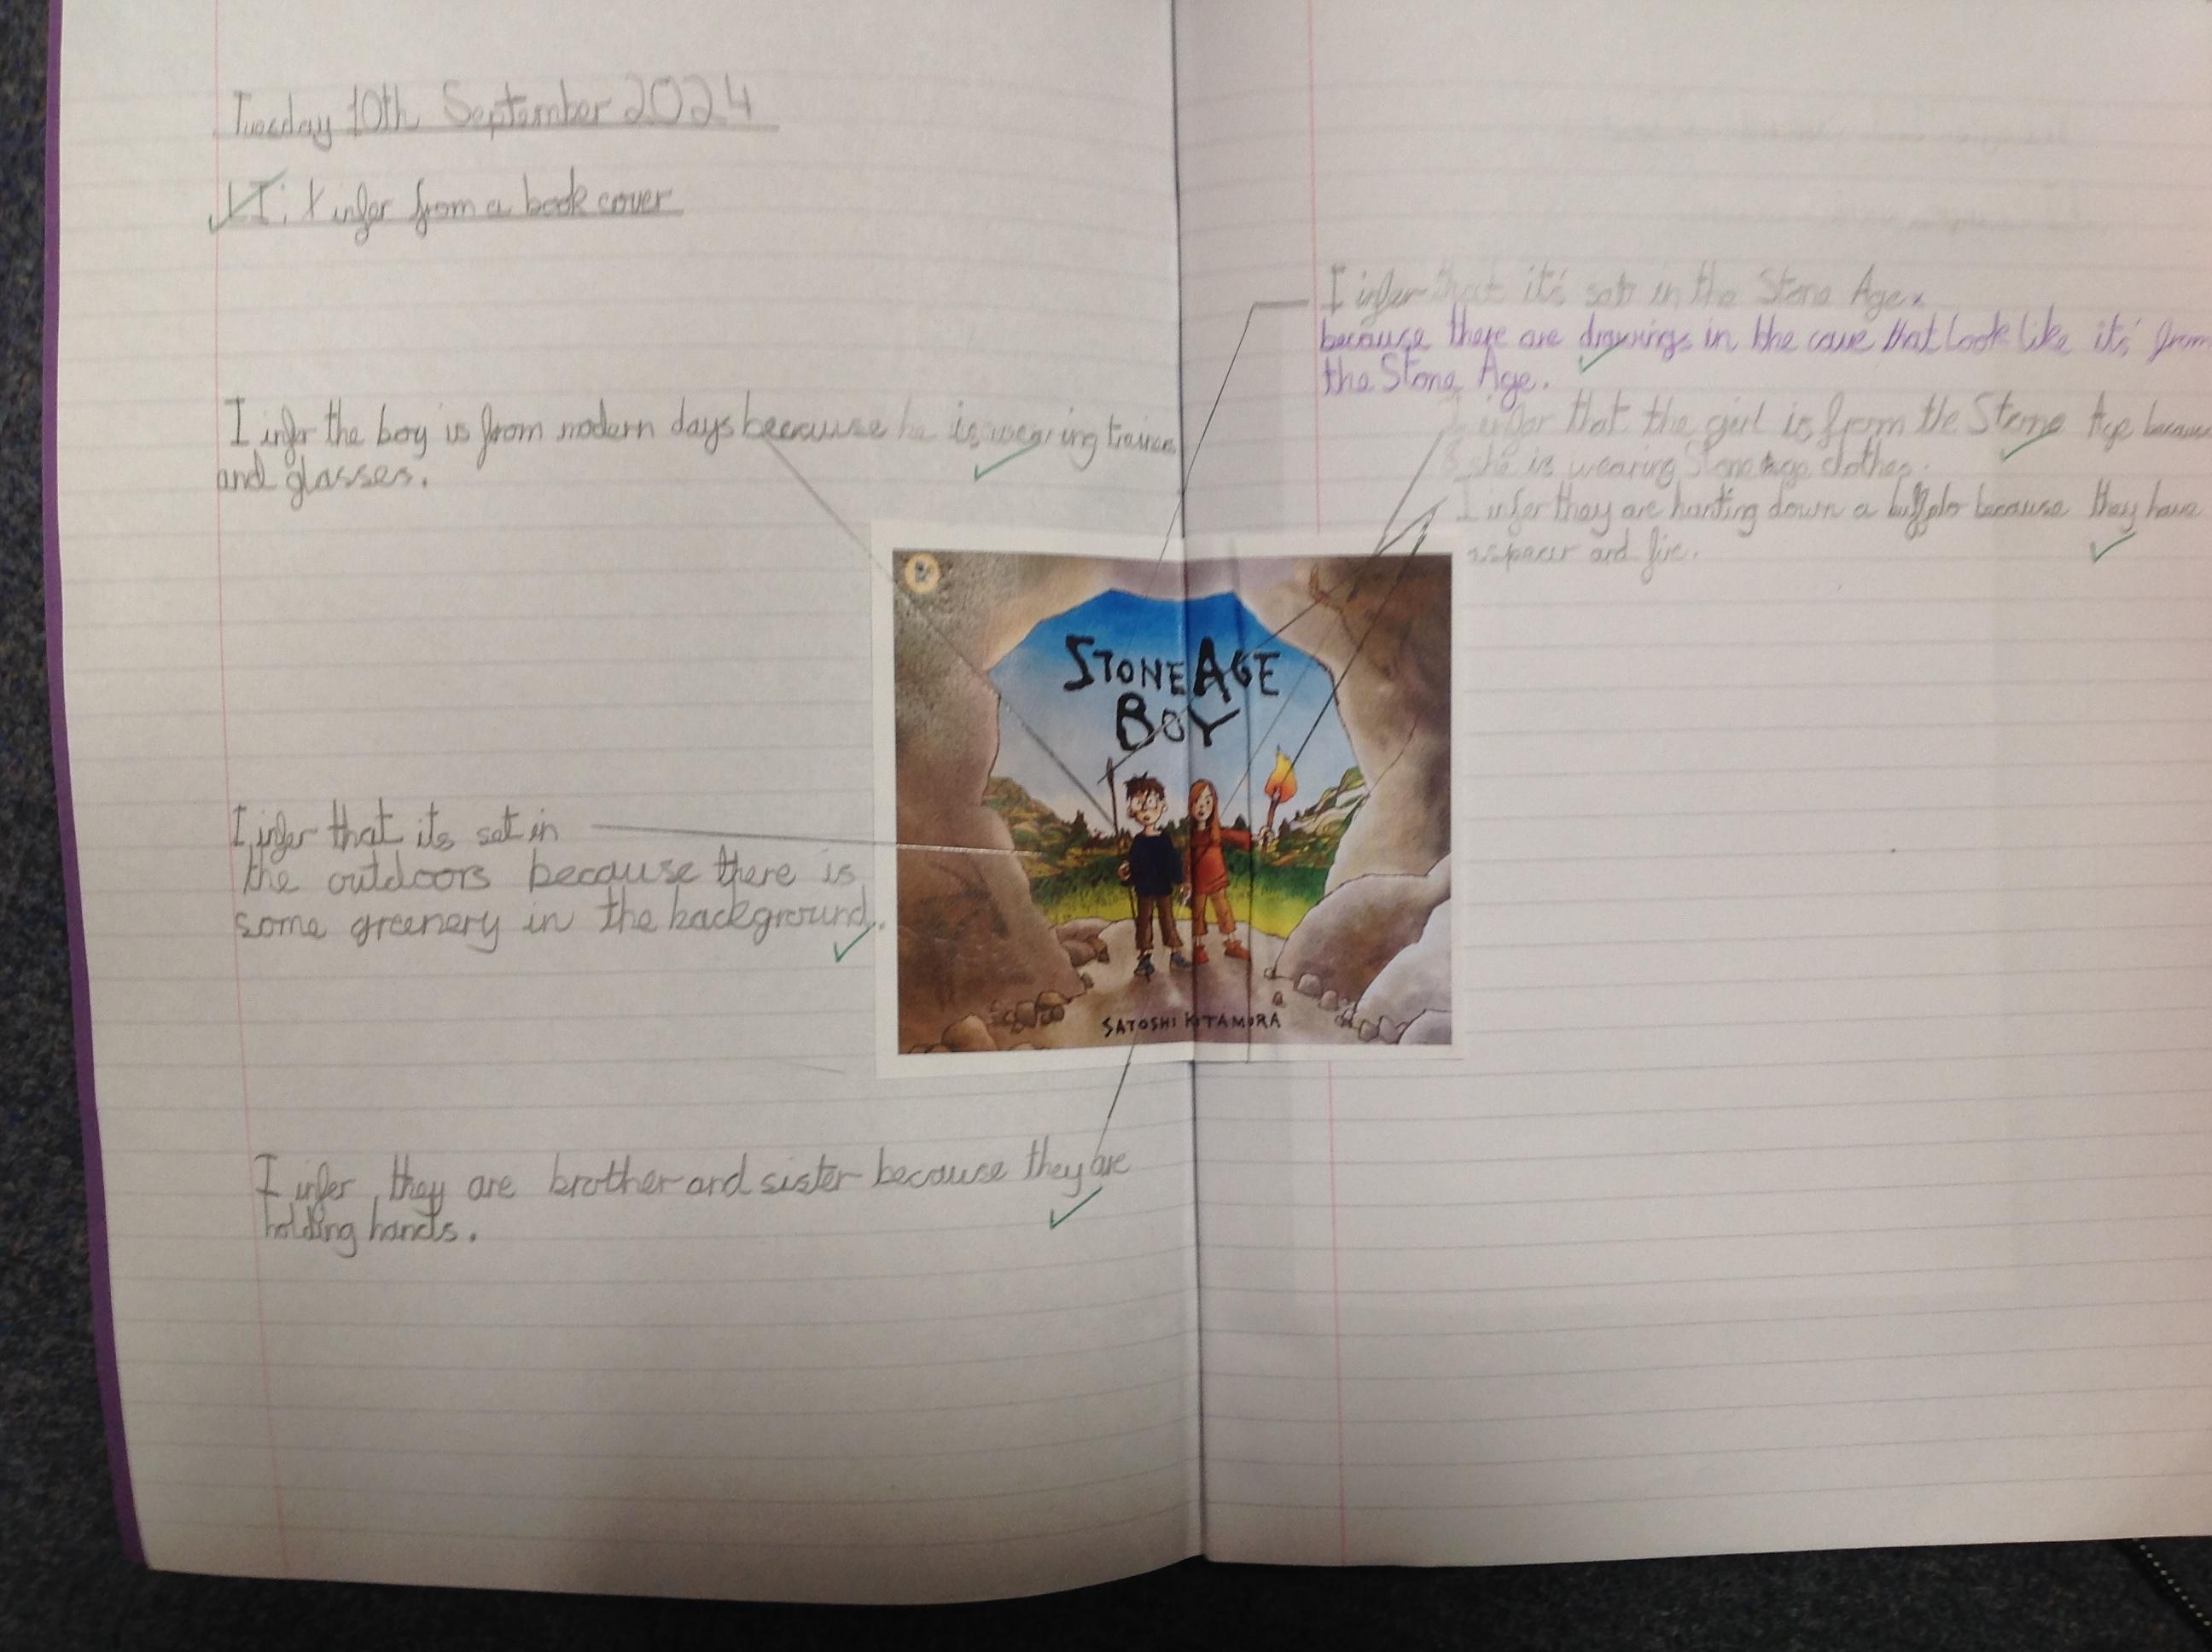 Tuesday 10th September 2024
LI: I infer from a book cover
I infer the boy is from modern days because he is wearing
and glasses.
I infer that its set in
the outdoors because there is
some greenery in the background.
I infer they are brother and sister because they are
holding hands.
STONE AGE
BOY
SATOSHI KITAMURA
I infer that it's set in the Stone Age.
because there are drawings in the cave that look like it's from
the Stone Age.
I infer that the girl is from the Stone Age because
she is wearing Stone age clothes.
I infer they are hunting down a buffalo because they have
spear and fire.